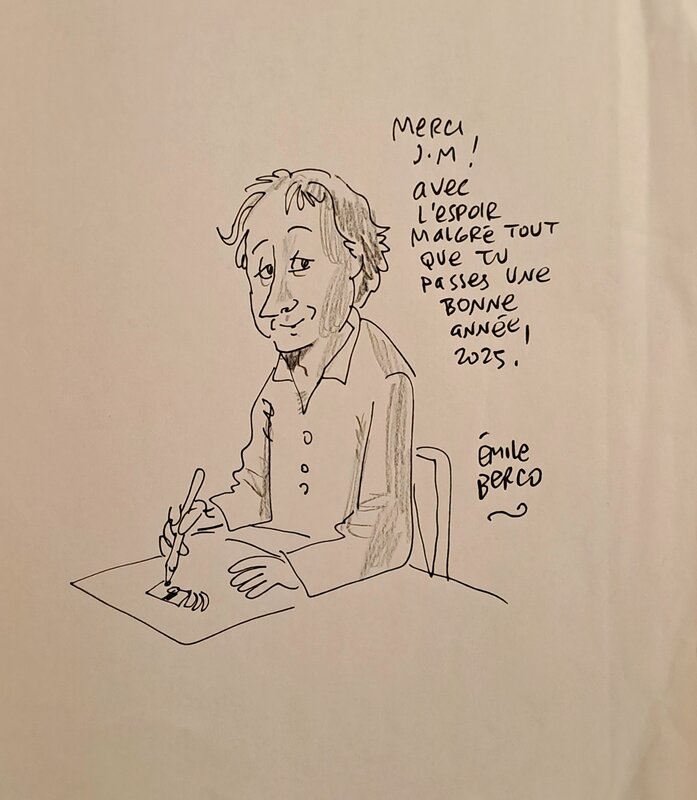 MERCI
J.M !
avec
L'ESPOIR
MALGRÉ TOUT
QUE TU
passes UNE
BONNE
ANNÉE,
2025.
Émile
BERCO